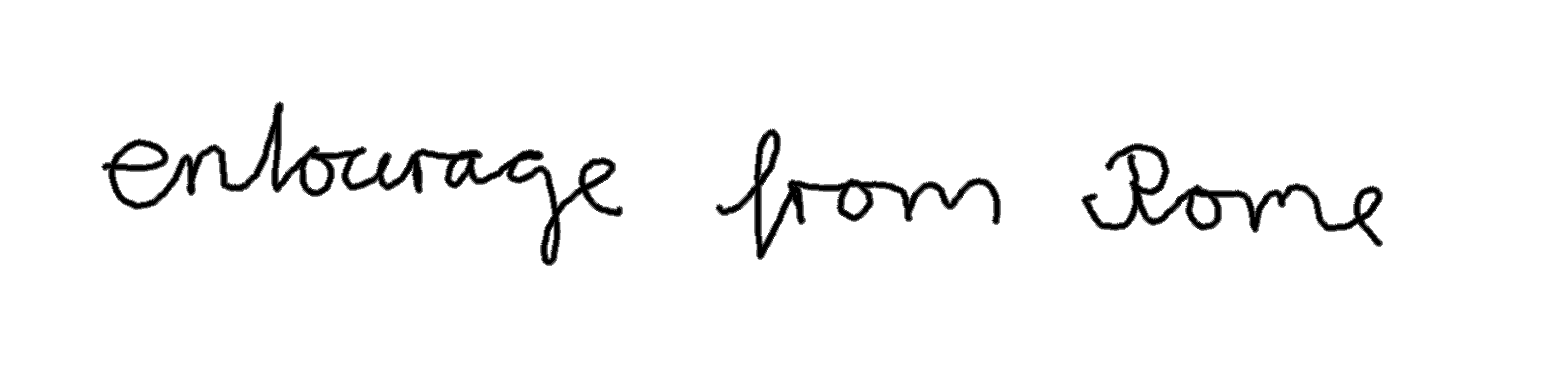 entourage from Rome